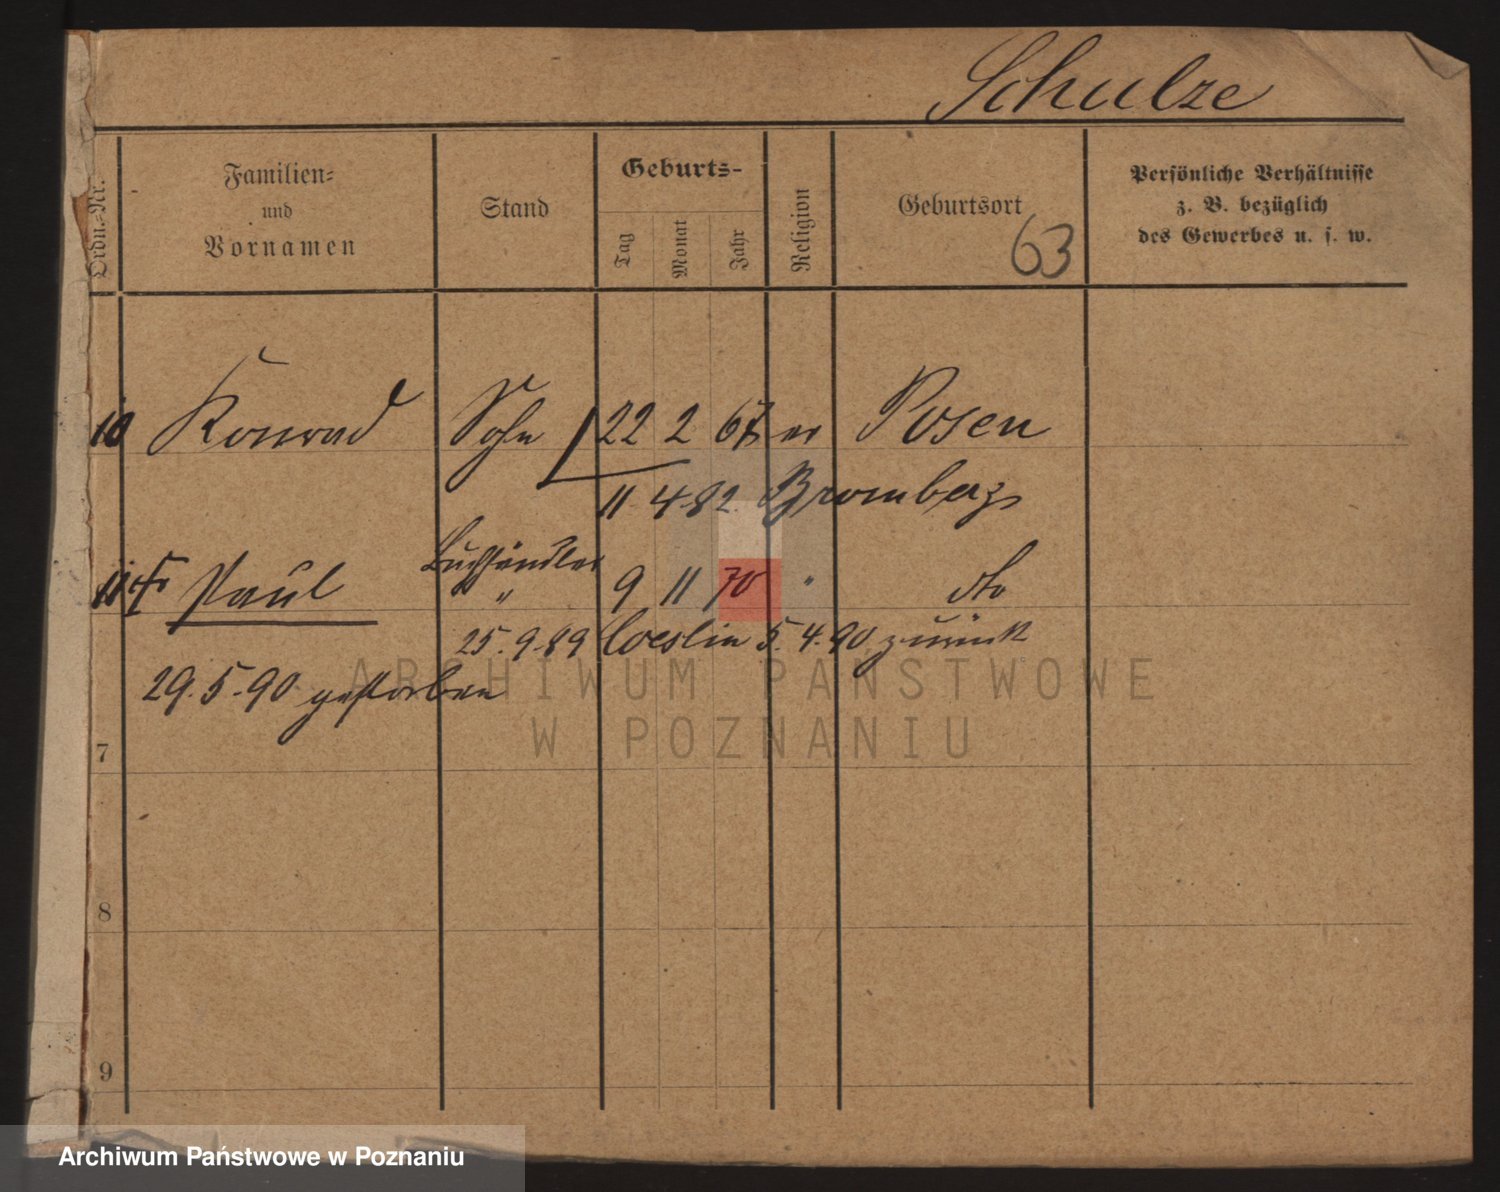 Schulze
Ordn.-Nr.
Familien-
und
Vornamen
Stand
Geburts-
Tag
Monat
Jahr
Religion
Geburtsort
63
Persönliche Verhältnisse
z. B. bezüglich
des Gewerbes u. s. w.
10 Konrad Sohn 22 2 67 ev Posen
11. 4. 82. Bromberg
Buchhändler
11 Paul " 9 11 70 " dto
25. 9. 89 Coeslin 5. 4. 90 zurück
29. 5. 90 gestorben
ARCHIWUM PAŃSTWOWE
W POZNANIU
7
8
9
Archiwum Państwowe w Poznaniu